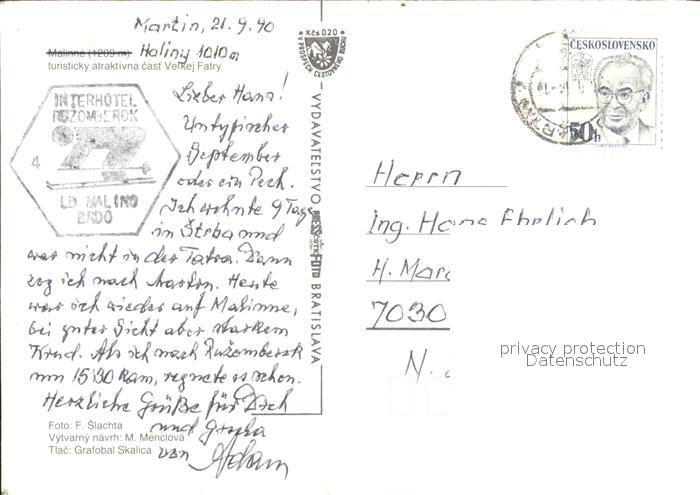 Martin, 21.9.90
Malinné (1209 m) Haliny 1010 m
turisticky atraktívna časť Veľkej Fatry
Kčs 0,20
V PROSPECH CESTOVNÉHO RUCHU
ČESKOSLOVENSKO
50 h
INTERHOTEL
RUŽOMBEROK
4
LD MALINO
BRDO
Lieber Hans!
Untypischer
September
oder ein Pech.
Ich wohnte 9 Tage
in Štrba und
war nicht in der Tatra. Dann
zog ich nach Martin. Heute
war ich wieder auf Malinne,
bei guter Sicht aber starkem
Wind. Als ich nach Ružomberok
um 15:30 kam, regnete es schon.
Herzliche Grüße für Dich
und
von Adam
VYDAVATEĽSTVO PRESSFOTO BRATISLAVA
Herrn
Ing. Hans Ehrlich
H. Mar
7030
privacy protection
Datenschutz
Foto: F. Šlachta
Výtvarný návrh: M. Menclová
Tlač: Grafobal Skalica